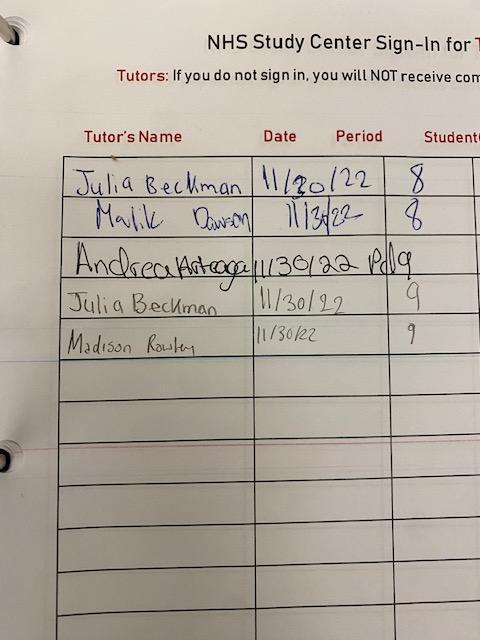 NHS Study Center Sign-In for T
Tutors: If you do not sign in, you will NOT receive com
Tutor's Name Date Period Student
Julia Beckman 11/30/22 8
Malik Dawson 11/30/22 8
Andrea Arteaga 11/30/22 Pd 9
Julia Beckman 11/30/22 9
Madison Rowley 11/30/22 9